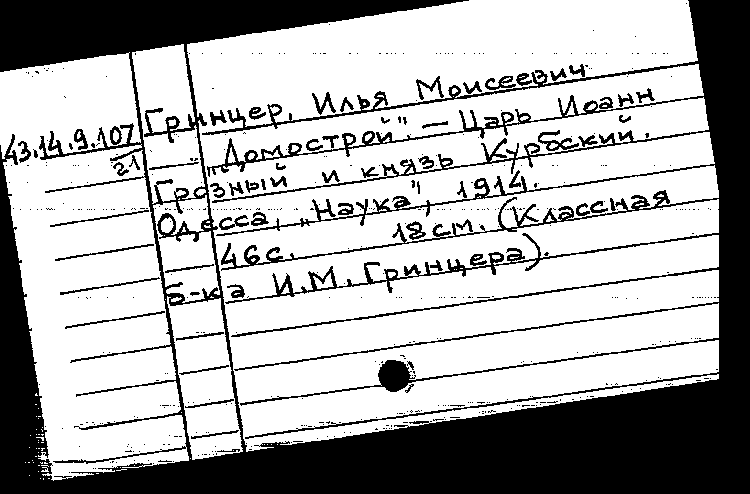 43.14.9.107
21
Гринцер, Илья Моисеевич
„Домострой". — Царь Иоанн
Грозный и князь Курбский.
Одесса, „Наука", 1914.
46с. 18см. (Классная
б-ка И.М. Гринцера).